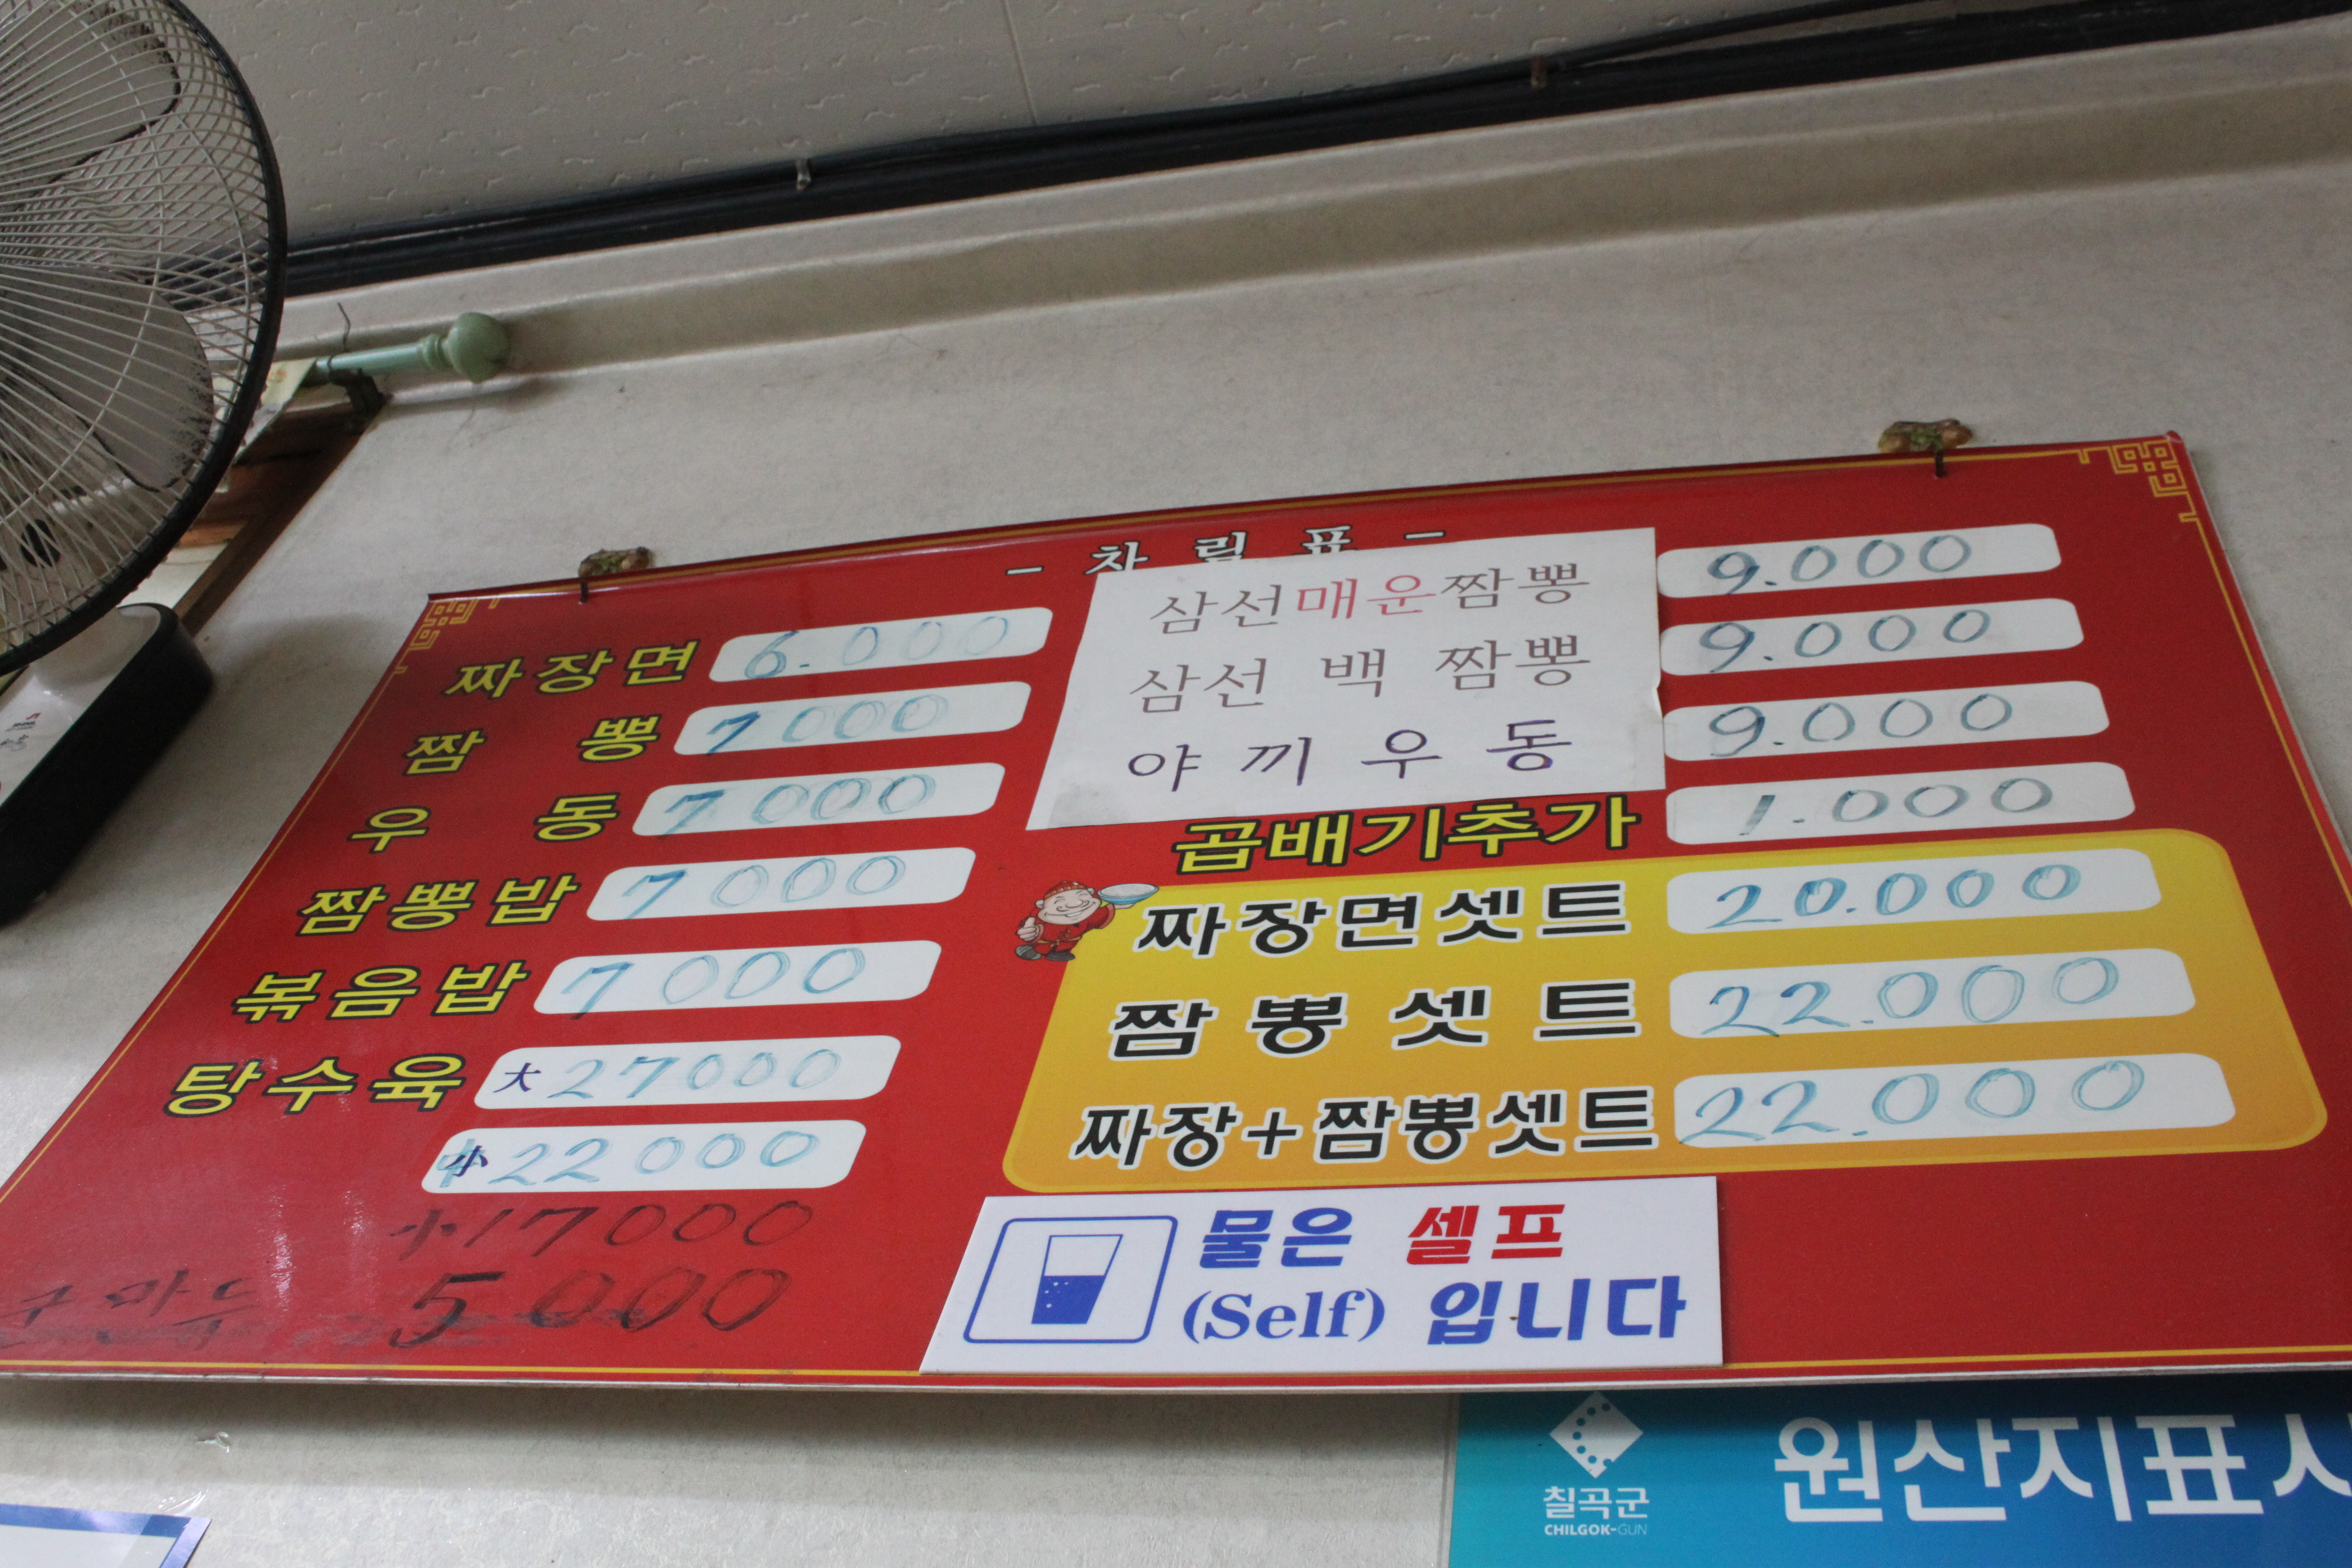 - 차 림 표 -
짜장면 6.000
짬 뽕 7000
우 동 7000
짬뽕밥 7000
볶음밥 7000
탕수육 大 27000
小 22000
小 17000
군만두 5000
삼선매운짬뽕 9.000
삼선 백 짬뽕 9.000
야끼우동 9.000
곱배기추가 1.000
짜장면셋트 20.000
짬뽕셋트 22.000
짜장+짬뽕셋트 22.000
물은 셀프
(Self) 입니다
칠곡군
CHILGOK-GUN
원산지표시